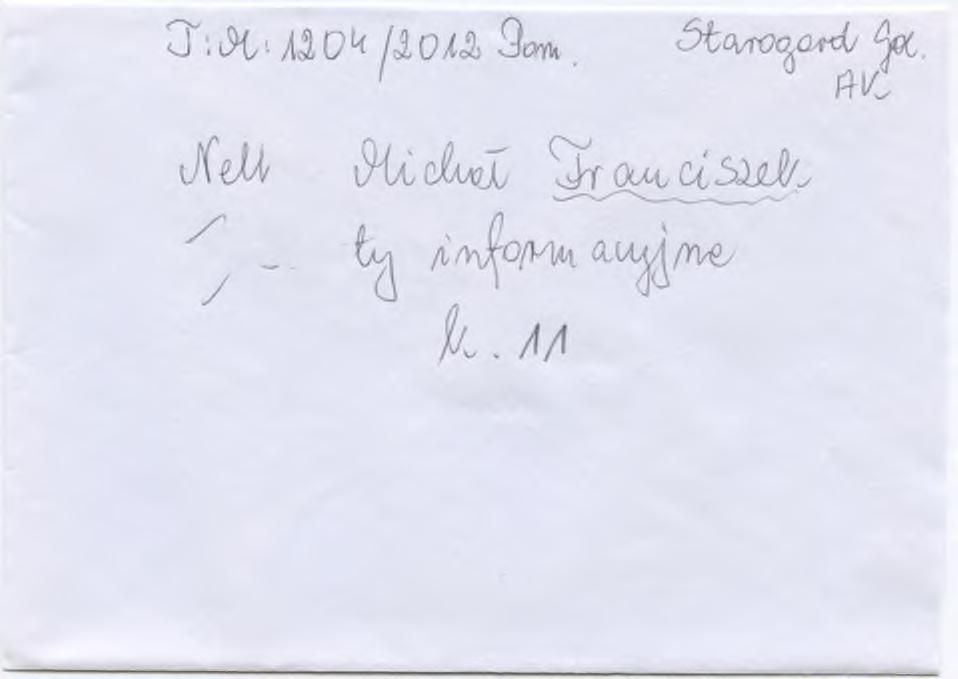 T: M: 1204/2012 Pom. Starogard Gd.
AK
Nell Michał Franciszek
ty informacyjne
k. 11